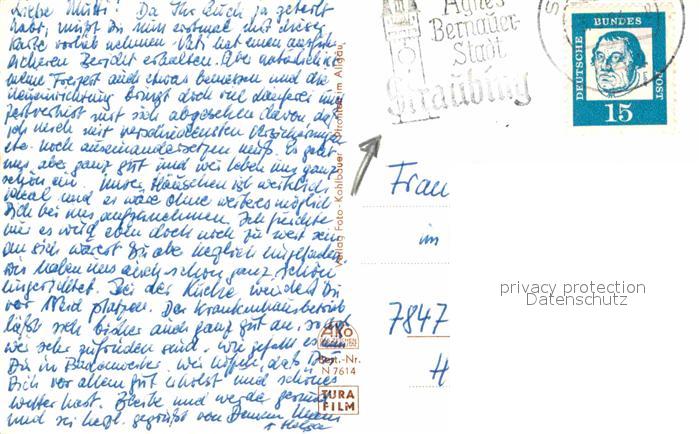 Liebe Mutti! Da Ihr Euch ja geteilt
habt, müßt Du nun erstmal mit dieser
Karte vorlieb nehmen. Vati hat einen ausführ-
licheren Bericht erhalten. Aber natürlich ist
meine Freizeit auch etwas bemessen und die
Neueinrichtung bringt doch viel Lauferei und
Zeitverlust mit sich abgesehen davon, daß
ich mich mit verschiedensten Versicherungen
etc. noch auseinandersetzen muß. Es geht
uns aber ganz gut und wir leben uns ganz
schön ein. Unser Häuschen ist wirklich
ideal und es wäre ohne weiteres möglich
Dich bei uns aufzunehmen. Ich fürchte
nur es wird eben doch noch zu weit sein
an sich wärest Du aber herzlich eingeladen.
Wir haben uns auch schon ganz schön
eingerichtet. Bei der Küche würdest Du
vor Neid platzen. Der Krankenhausbetrieb
läßt sich bisher auch ganz gut an, so daß
wir sehr zufrieden sind. Wie gefällt es
Dir in Badenweiler. Wir hoffen, daß Du
Dich vor allem gut erholst und schönes
Wetter hast. Bleibe und werde gesund
und sei herzl. gegrüßt von Deinem
Agnes
Bernauer-
Stadt
Straubing
DEUTSCHE BUNDESPOST
15
Verlag Foto-Kohlbauer · Pfronten im Allgäu
Frau
im
7847
H
AKO
Best.-Nr.
N 7614
TURA
FILM
privacy protection
Datenschutz